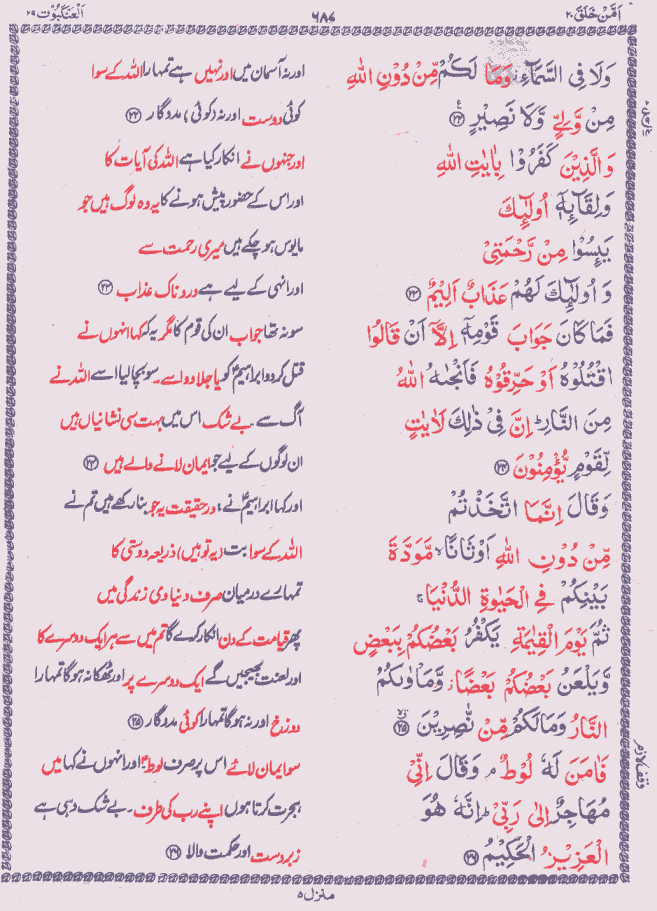 اَمَّنْ خَلَقَ ۲۰
۶۸۷
اَلْعَنْكَبُوْت ۲۹
وَلَا فِى السَّمَآءِ وَمَا لَكُمْ مِّنْ دُوْنِ اللهِ
اور نہ آسمان میں اور نہیں ہے تمہارا اللہ کے سوا
مِنْ وَّلِىٍّ وَّلَا نَصِيْرٍ ﴿۲۲﴾
کوئی دوست اور نہ (کوئی) مددگار ﴿۲۲﴾
وَالَّذِيْنَ كَفَرُوْا بِاٰيٰتِ اللهِ
اور جنہوں نے انکار کیا ہے اللہ کی آیات کا
وَلِقَآئِهٖٓ اُولٰٓئِكَ
اور اس کے حضور پیش ہونے کا یہ وہ لوگ ہیں جو
يَئِسُوْا مِنْ رَّحْمَتِىْ
مایوس ہو چکے ہیں میری رحمت سے
وَ اُولٰٓئِكَ لَهُمْ عَذَابٌ اَلِيْمٌ ﴿۲۳﴾
اور انہی کے لیے ہے دردناک عذاب ﴿۲۳﴾
فَمَا كَانَ جَوَابَ قَوْمِهٖٓ اِلَّآ اَنْ قَالُوا
سو نہ تھا جواب ان کی قوم کا مگر یہ کہ کہا انہوں نے
اقْتُلُوْهُ اَوْ حَرِّقُوْهُ فَاَنْجٰىهُ اللهُ
قتل کر دو ابراہیمؑ کو یا جلا دو اسے۔ سو بچا لیا اسے اللہ نے
مِنَ النَّارِ ؕ اِنَّ فِىْ ذٰلِكَ لَاٰيٰتٍ
آگ سے بے شک اس میں بہت سی نشانیاں ہیں
لِّقَوْمٍ يُّؤْمِنُوْنَ ﴿۲۴﴾
ان لوگوں کے لیے جو ایمان لانے والے ہیں ﴿۲۴﴾
وَقَالَ اِنَّمَا اتَّخَذْتُمْ
اور کہا ابراہیمؑ نے: درحقیقت یہ جو بنا رکھے ہیں تم نے
مِّنْ دُوْنِ اللهِ اَوْثَانًا ۙ مَّوَدَّةَ
اللہ کے سوا بت (یہ تو ہیں) ذریعہ دوستی کا
بَيْنِكُمْ فِى الْحَيٰوةِ الدُّنْيَا ۚ
تمہارے درمیان صرف دنیاوی زندگی میں
ثُمَّ يَوْمَ الْقِيٰمَةِ يَكْفُرُ بَعْضُكُمْ بِبَعْضٍ
پھر قیامت کے دن انکار کرے گا تم میں سے ہر ایک دوسرے کا
وَّيَلْعَنُ بَعْضُكُمْ بَعْضًا ؗ وَّمَاْوٰىكُمُ
اور لعنت بھیجیں گے ایک دوسرے پر اور ٹھکانہ ہوگا تمہارا
النَّارُ وَمَا لَكُمْ مِّنْ نّٰصِرِيْنَ ﴿۲۵﴾
دوزخ اور نہ ہوگا تمہارا کوئی مددگار ﴿۲۵﴾
فَاٰمَنَ لَهٗ لُوْطٌ ۘ وَقَالَ اِنِّىْ
سو ایمان لائے اس پر صرف لوطؑ! اور انہوں نے کہا میں
مُهَاجِرٌ اِلٰى رَبِّىْ ؕ اِنَّهٗ هُوَ
ہجرت کرتا ہوں اپنے رب کی طرف۔ بے شک وہی ہے
الْعَزِيْزُ الْحَكِيْمُ ﴿۲۶﴾
زبردست اور حکمت والا ﴿۲۶﴾
وقف لازم
منزل ۵